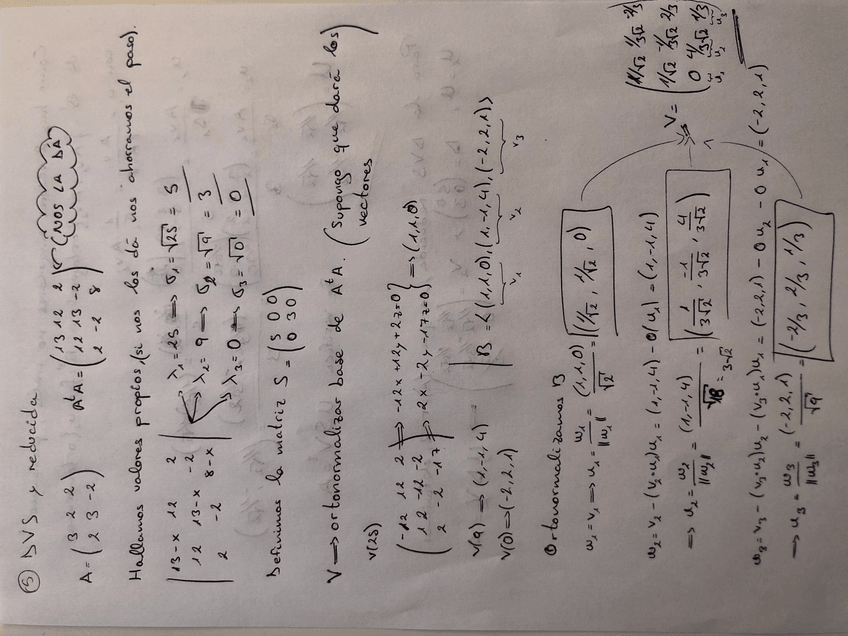 ⑤ DVS y reducida
A = (3 2 2 / 2 3 -2) AᵗA = (13 12 2 / 12 13 -2 / 2 -2 8) ¡NOS LA DÁ!
Hallamos valores propios (si nos los dá nos ahorramos el paso).
|13-x 12 2 / 12 13-x -2 / 2 -2 8-x| λ₁ = 25 → σ₁ = √25 = 5
λ₂ = 9 → σ₂ = √9 = 3
λ₃ = 0 → σ₃ = √0 = 0
Definimos la matriz S = (5 0 0 / 0 3 0)
V → ortonormalizar base de AᵗA. (Supongo que dará los
vectores
V(25)
(-12 12 2 / 12 -12 -2 / 2 -2 -17) ⇒ -12x + 12y + 2z = 0
⇒ 2x - 2y - 17z = 0 } ⇒ (1,1,0)
V(9) ⇒ (1,-1,4)
V(0) ⇒ (-2,2,1)
B = <(1,1,0), (1,-1,4), (-2,2,1)>
v₁ v₂ v₃
Ortonormalizamos B
w₁ = v₁ ⇒ u₁ = w₁/||w₁|| = (1,1,0)/√2 = (1/√2, 1/√2, 0)
w₂ = v₂ - (v₂·u₁)u₁ = (1,-1,4) - 0(u₁) = (1,-1,4)
⇒ u₂ = w₂/||w₂|| = (1,-1,4)/√18 = (1/3√2, -1/3√2, 4/3√2)
√18 = 3√2
w₃ = v₃ - (v₃·u₂)u₂ - (v₃·u₁)u₁ = (-2,2,1) - 0u₂ - 0u₁ = (-2,2,1)
→ u₃ = w₃/||w₃|| = (-2,2,1)/√9 = (-2/3, 2/3, 1/3)
V = (1/√2 1/3√2 -2/3 / 1/√2 -1/3√2 2/3 / 0 4/3√2 1/3)
u₁ u₂ u₃